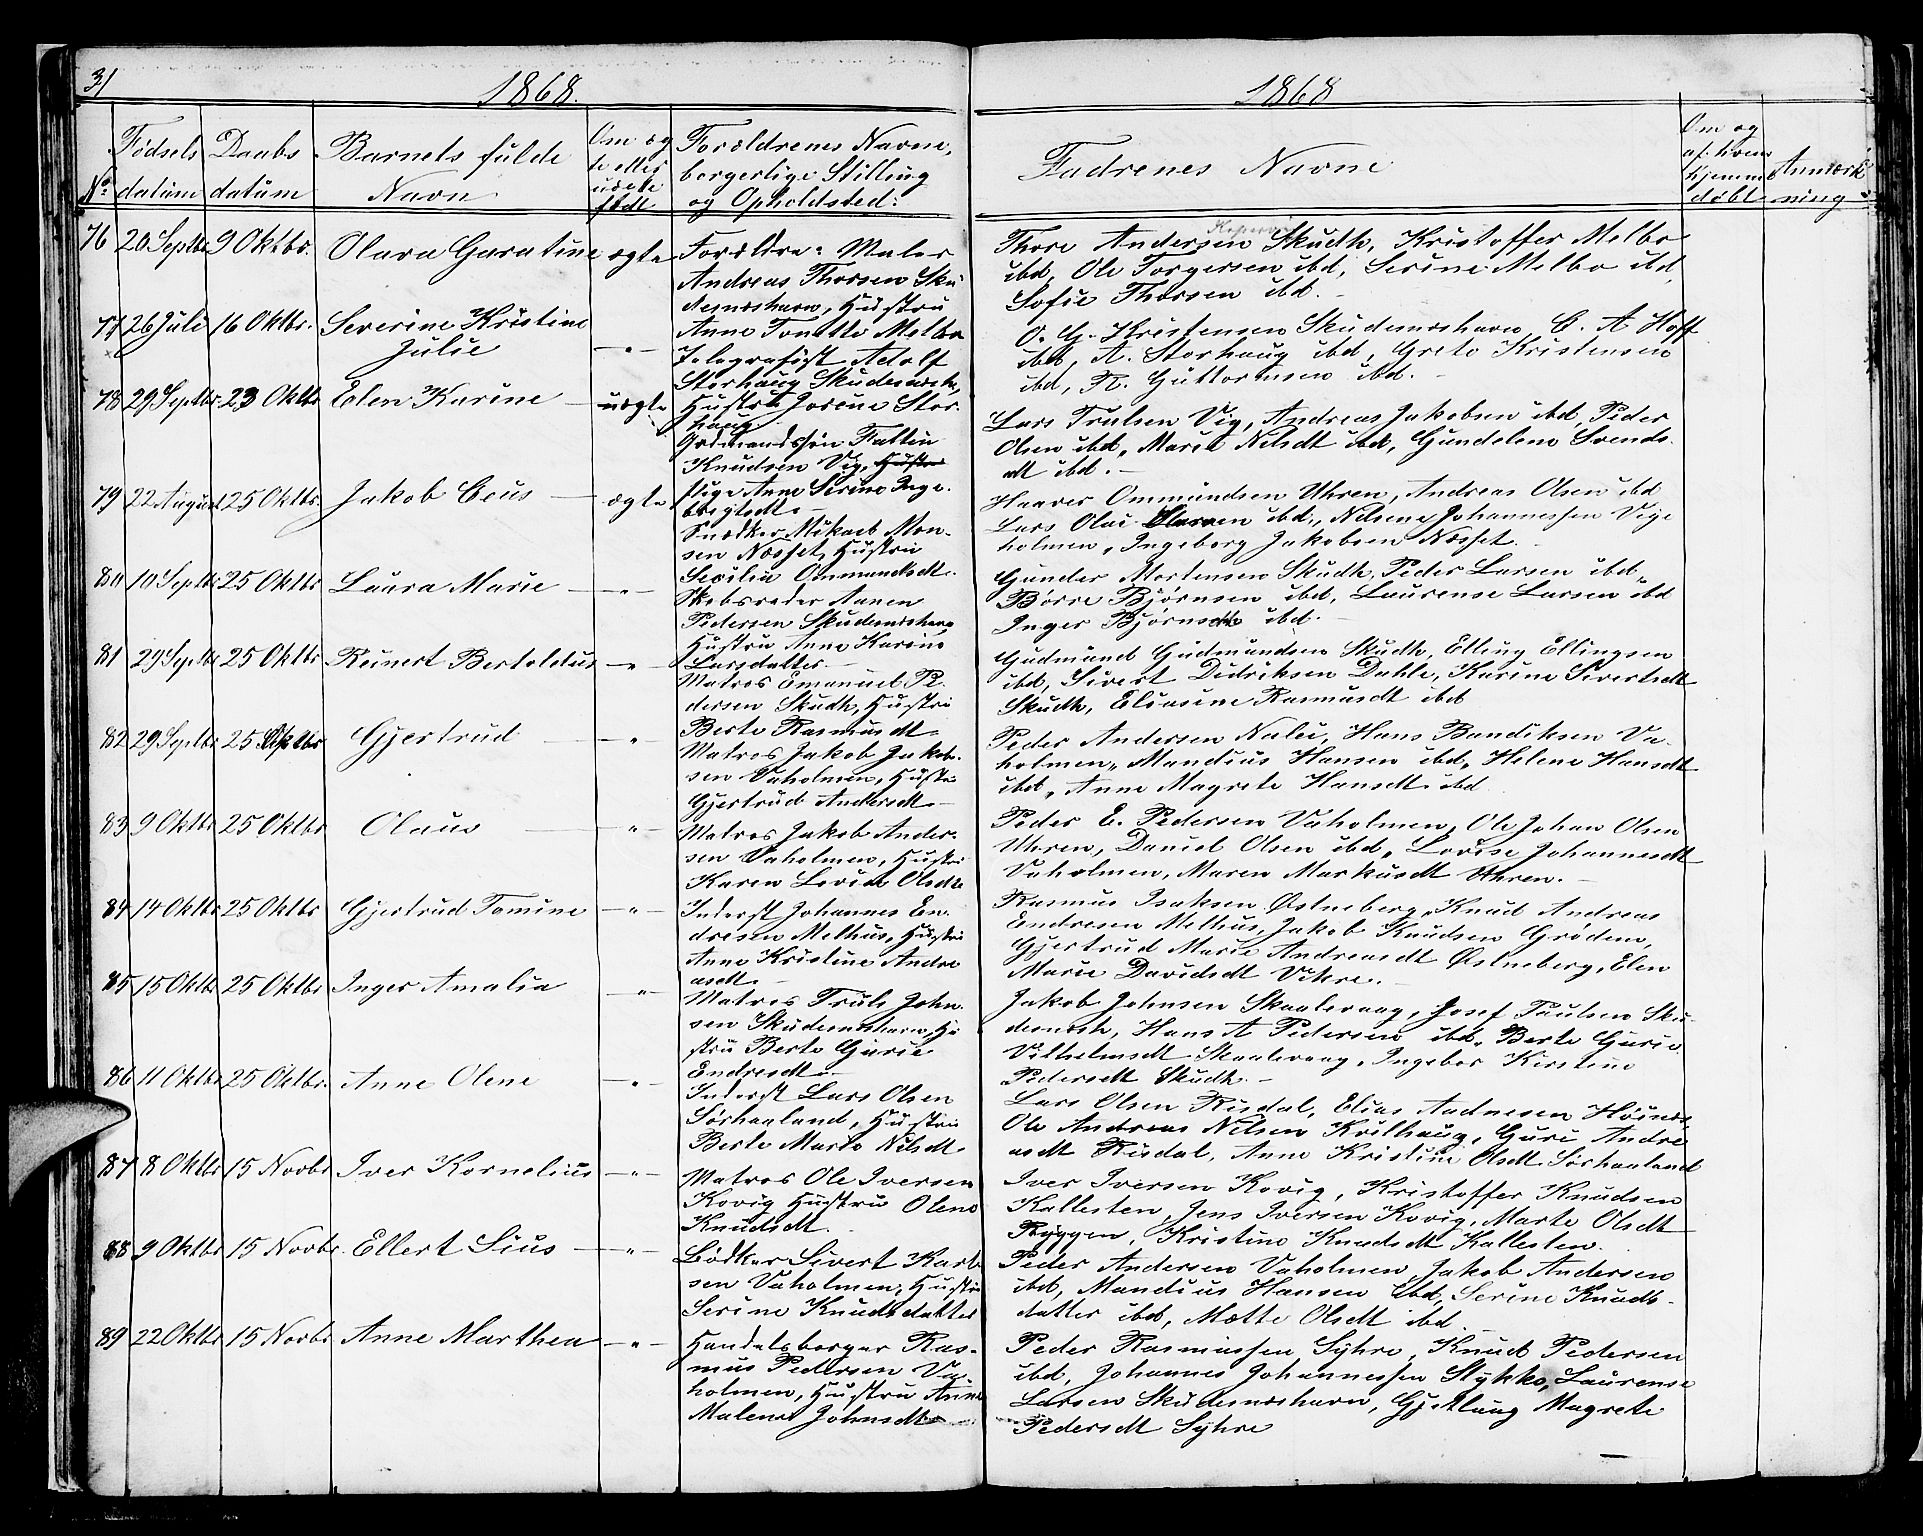 31
1868.
1868
No
Fødsels datum
Daabs datum
Barnets fulde Navn
Om ægte eller uægte født
Forældrenes Navne, borgerlige Stilling og Opholdsted:
Fadrenes Navne
Om og af hvem hjemmedøbt
Anmærkning
76 20 Septbr 9 Oktbr. Olava Garatine ægte
Forældre: Maler
Andreas Thorsen Sku
desneshavn, Hustru
Anne Tonette Melbo
Thore Andersen Skudh, Kristoffer Melbo
ibd, Ole Torgersen ibd, Serine Melbo ibd,
Sofie Thorsen ibd.
77 26 Juli 16 Oktbr. Severine Kristine
Julie
Telegrafist Adolf
Storhaug Skudesnesh,
Hustru Jorine Stor-
haug
O. G. Kristensen Skudesneshavn, C. A Hoff
ibd, A. Storhaug ibd, Grete Kristensen
ibd, R. Guttormsen ibd.
78 29 Septbr 23 Oktbr Elen Karine uægte
Gaardmandssøn Falkin
Knudsen Vig,
Pige Anne Serine Inge-
brigtsdt
Lars Trulsen Vig, Andreas Jakobsen ibd, Peder
Olsen ibd, Marta Nilsdt ibd, Gundelene Svends-
dt ibd.
79 22 August 25 Oktbr. Jakob Ceus ægte
Snedker Mikael Mon-
sen Næsset, Hustru
Sesilia Ommundsdt.
Haaver Ommundsen Uhren, Andreas Olsen ibd
Lars Olai Larsen ibd., Nilsine Johannessen Vige
holmen, Ingeborg Jakobsen Næsset.
80 10 Septbr 25 Oktbr Laura Marie
Skibsreder Aanen
Pedersen Skudesneshavn
Hustru Anne Karine
Larsdatter
Gunder Mortensen Skudh, Peder Larsen ibd,
Børre Bjørnsen ibd, Laurense Larsen ibd
Inger Bjørnsdt ibd.
81 29 Septbr 25 Oktbr Reinert Bertoldus
Matros Emanuel Pe-
dersen Skudh, Hustru
Berte Rasmusdt
Gudmund Gudmundsen Skudh, Elling Ellingsen
ibd, Sivert Didriksen Dahle, Karine Sivertsdt
Skudh, Eliasine Rasmusdt ibd
82 29 Septbr 25 Oktbr Gjertrud
Matros Jakob Jakob-
sen Vaholmen, Hustru
Gjertrud Andersdt
Peder Andersen Nalei, Hans Bendiksen Va-
holmen, Mandius Hansen ibd, Helene Hansdt
ibd, Anne Magrete Hansdt ibd
83 9 Oktbr 25 Oktbr Olaus
Matros Jakob Ander-
sen Vaholmen, Hustru
Karen Lovise Olsdt
Peder E. Pedersen Vaholmen, Ole Johan Olsen
Uhren, Daniel Olsen ibd, Lovise Johannesdt
Vaholmen, Maren Markusdt Uhren.
84 14 Oktbr 25 Oktbr Gjertrud Tomine
Inderst Johannes En-
dresen Melhus, Hustru
Anne Kristine Andre
asdt
Rasmus Isaksen Østneberg, Knud Andreas
Endresen Melhus, Jakob Knudsen Grødem,
Gjertrud Marie Andreasdt Østneberg, Elen
Marie Davidsdt Vikre.
85 15 Oktbr 25 Oktbr Inger Amalia
Matros Truls John-
sen Skudesneshavn, Hu
stru Berte Gurie
Endresdt
Jakob Johnsen Skaalevaag, Josef Paulsen Sku-
desnesh, Hans A Pedersen ibd, Berte Gurie
Vilhelmsdt Skaalevaag, Ingebor Kirstine
Pedersdt Skudh.
86 11 Oktbr 25 Oktbr. Anne Olene
Inderst Lars Olsen
Sørhaaland, Hustru
Berte Marte Nilsdt
Lars Olsen Risdal, Elias Aadnesen Høines,
Ole Andreas Nilsen Kvilhaug, Guri Andre
asdt Risdal, Anne Kristine Olsdt Sørhaaland
87 8 Oktbr 15 Novbr Iver Kornelius
Matros Ole Iversen
Kovig Hustru Olene
Knudsdt.
Iver Iversen Kovig, Kristoffer Knudsen
Kallesten, Jens Iversen Kovig, Marte Olsdt
Ryggen, Kristine Knudsdt Kallesten.
88 9 Oktbr 15 Novbr. Ellert Sius
Bødker Sivert Karl-
sen Vaholmen, Hustru
Serine Knudsdatter
Peder Andersen Vaholmen, Jakob Andersen
ibd, Mandius Hansen ibd, Serine Knuds-
datter ibd, Mætte Olsdt ibd
89 22 Oktbr 15 Novbr Anne Marthea
Handelsborger Ras-
mus Pedersen Va-
holmen, Hustru Anne
Malene Johnsdtr
Peder Rasmussen Syhre, Knud Pedersen
ibd, Johannes Johannessen Stykke, Laurense
Larsen Skudesneshavn, Gjetlaug Magrete
Pedersdt Syhre